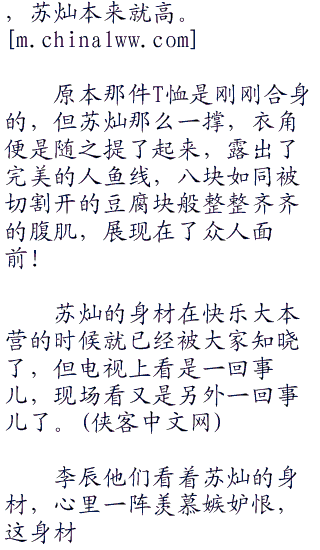 ，苏灿本来就高。
[m.china1ww.com]
原本那件T恤是刚刚合身
的，但苏灿那么一撑，衣角
便是随之提了起来，露出了
完美的人鱼线，八块如同被
切割开的豆腐块般整整齐齐
的腹肌，展现在了众人面
前！
苏灿的身材在快乐大本
营的时候就已经被大家知晓
了，但电视上看是一回事
儿，现场看又是另外一回事
儿了。(侠客中文网)
李辰他们看着苏灿的身
材，心里一阵羡慕嫉妒恨，
这身材